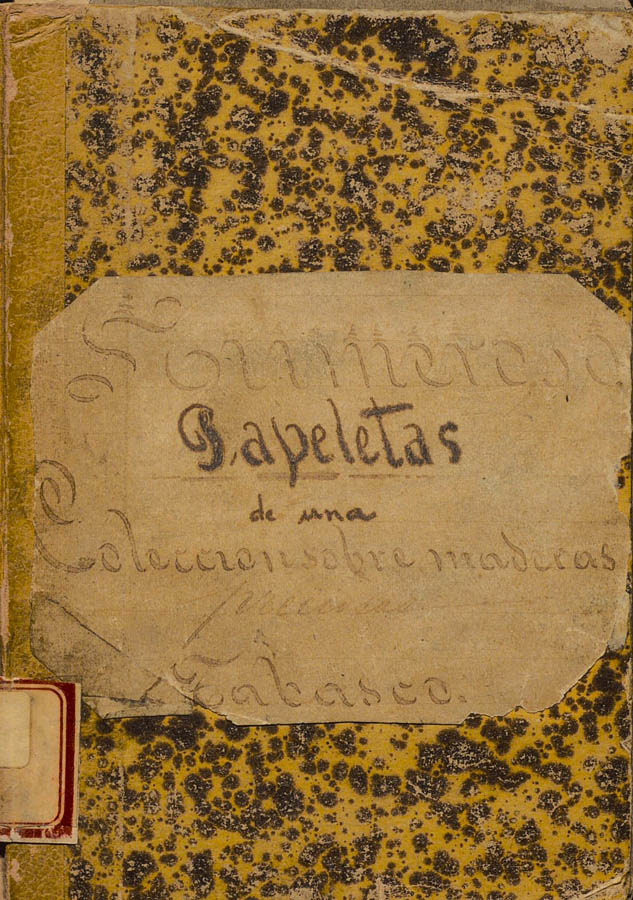 Papeletas
de una
Coleccion sobre maderas
Tabasco.